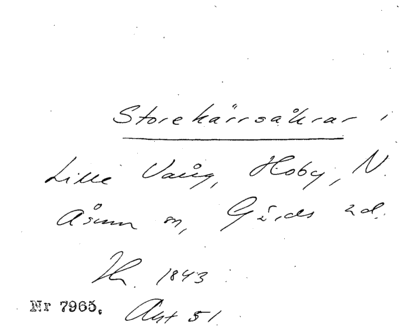 Storekärrsåkrar,
Lille Vång, Hoby, N.
Åsum sn, Gärds hd.
1843
Nr 7965. Akt 51